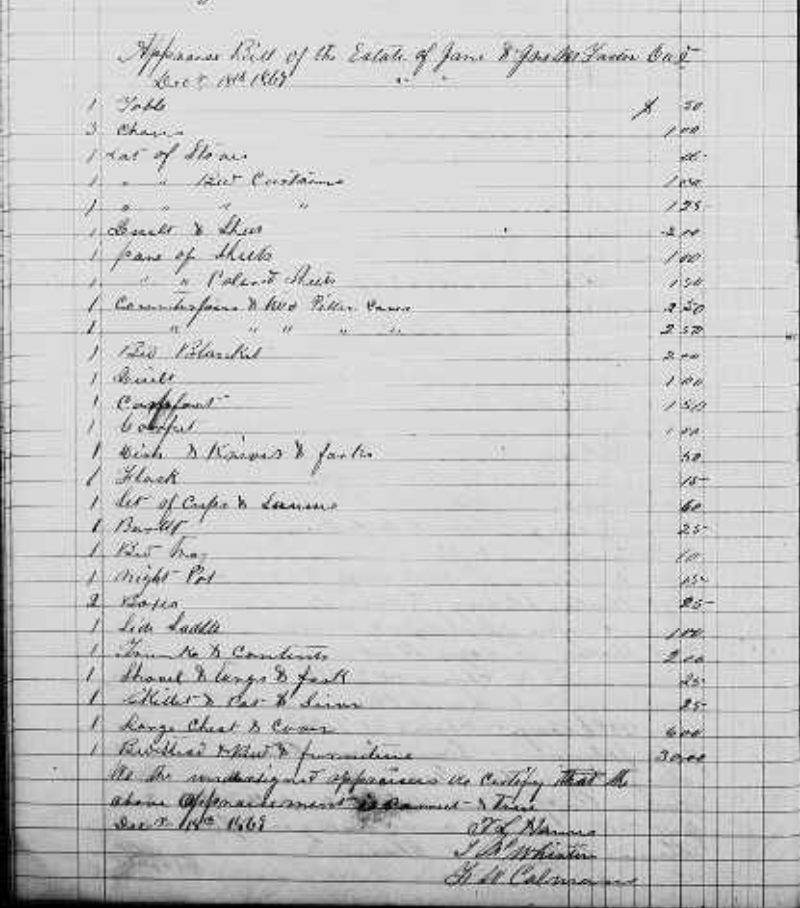 Appraise Bill of the Estate of Jane & Dec'd
Dec 18th 1869 " "
1 Table $ 50
3 Chairs 1 00
1 Lot of
1 " " Bed Curtains 1 00
1 " " " " 1 25
1 Quilt & Sheet 2 00
1 pare of Sheets 1 00
1 " " Colard Sheets 1 50
1 Counterpane & two Piller cases 2 50
1 " " " " " 2 50
1 Bed Blanket 2 00
1 Quilt 1 00
1 Comfort 1 50
1 Carpet 1 00
1 Dish & Knives & forks 50
1 Flask 15
1 Set of Cups & 60
1 25
1 10
1 Night Pot 15
2 Boxes 25
1 Side Saddle 1 00
1 Trunk & Contents 2 00
1 Shovel & tongs & fork 25
1 Skillet & Pot & 25
1 Large Chest & 6 00
1 Bedstead & Bed & furniture 30 00
We the undersigned appraisers do certify that the
above appraisement is correct & true
Dec 18th 1869